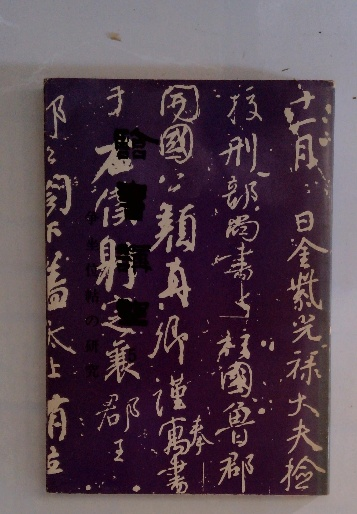 十一月 日金紫光祿大夫撿
挍刑部尚書上柱國魯郡
開國公顏真卿謹奉寓書
于右僕射定襄郡王
郭公閣下蓋太上有立
争坐位帖の研究